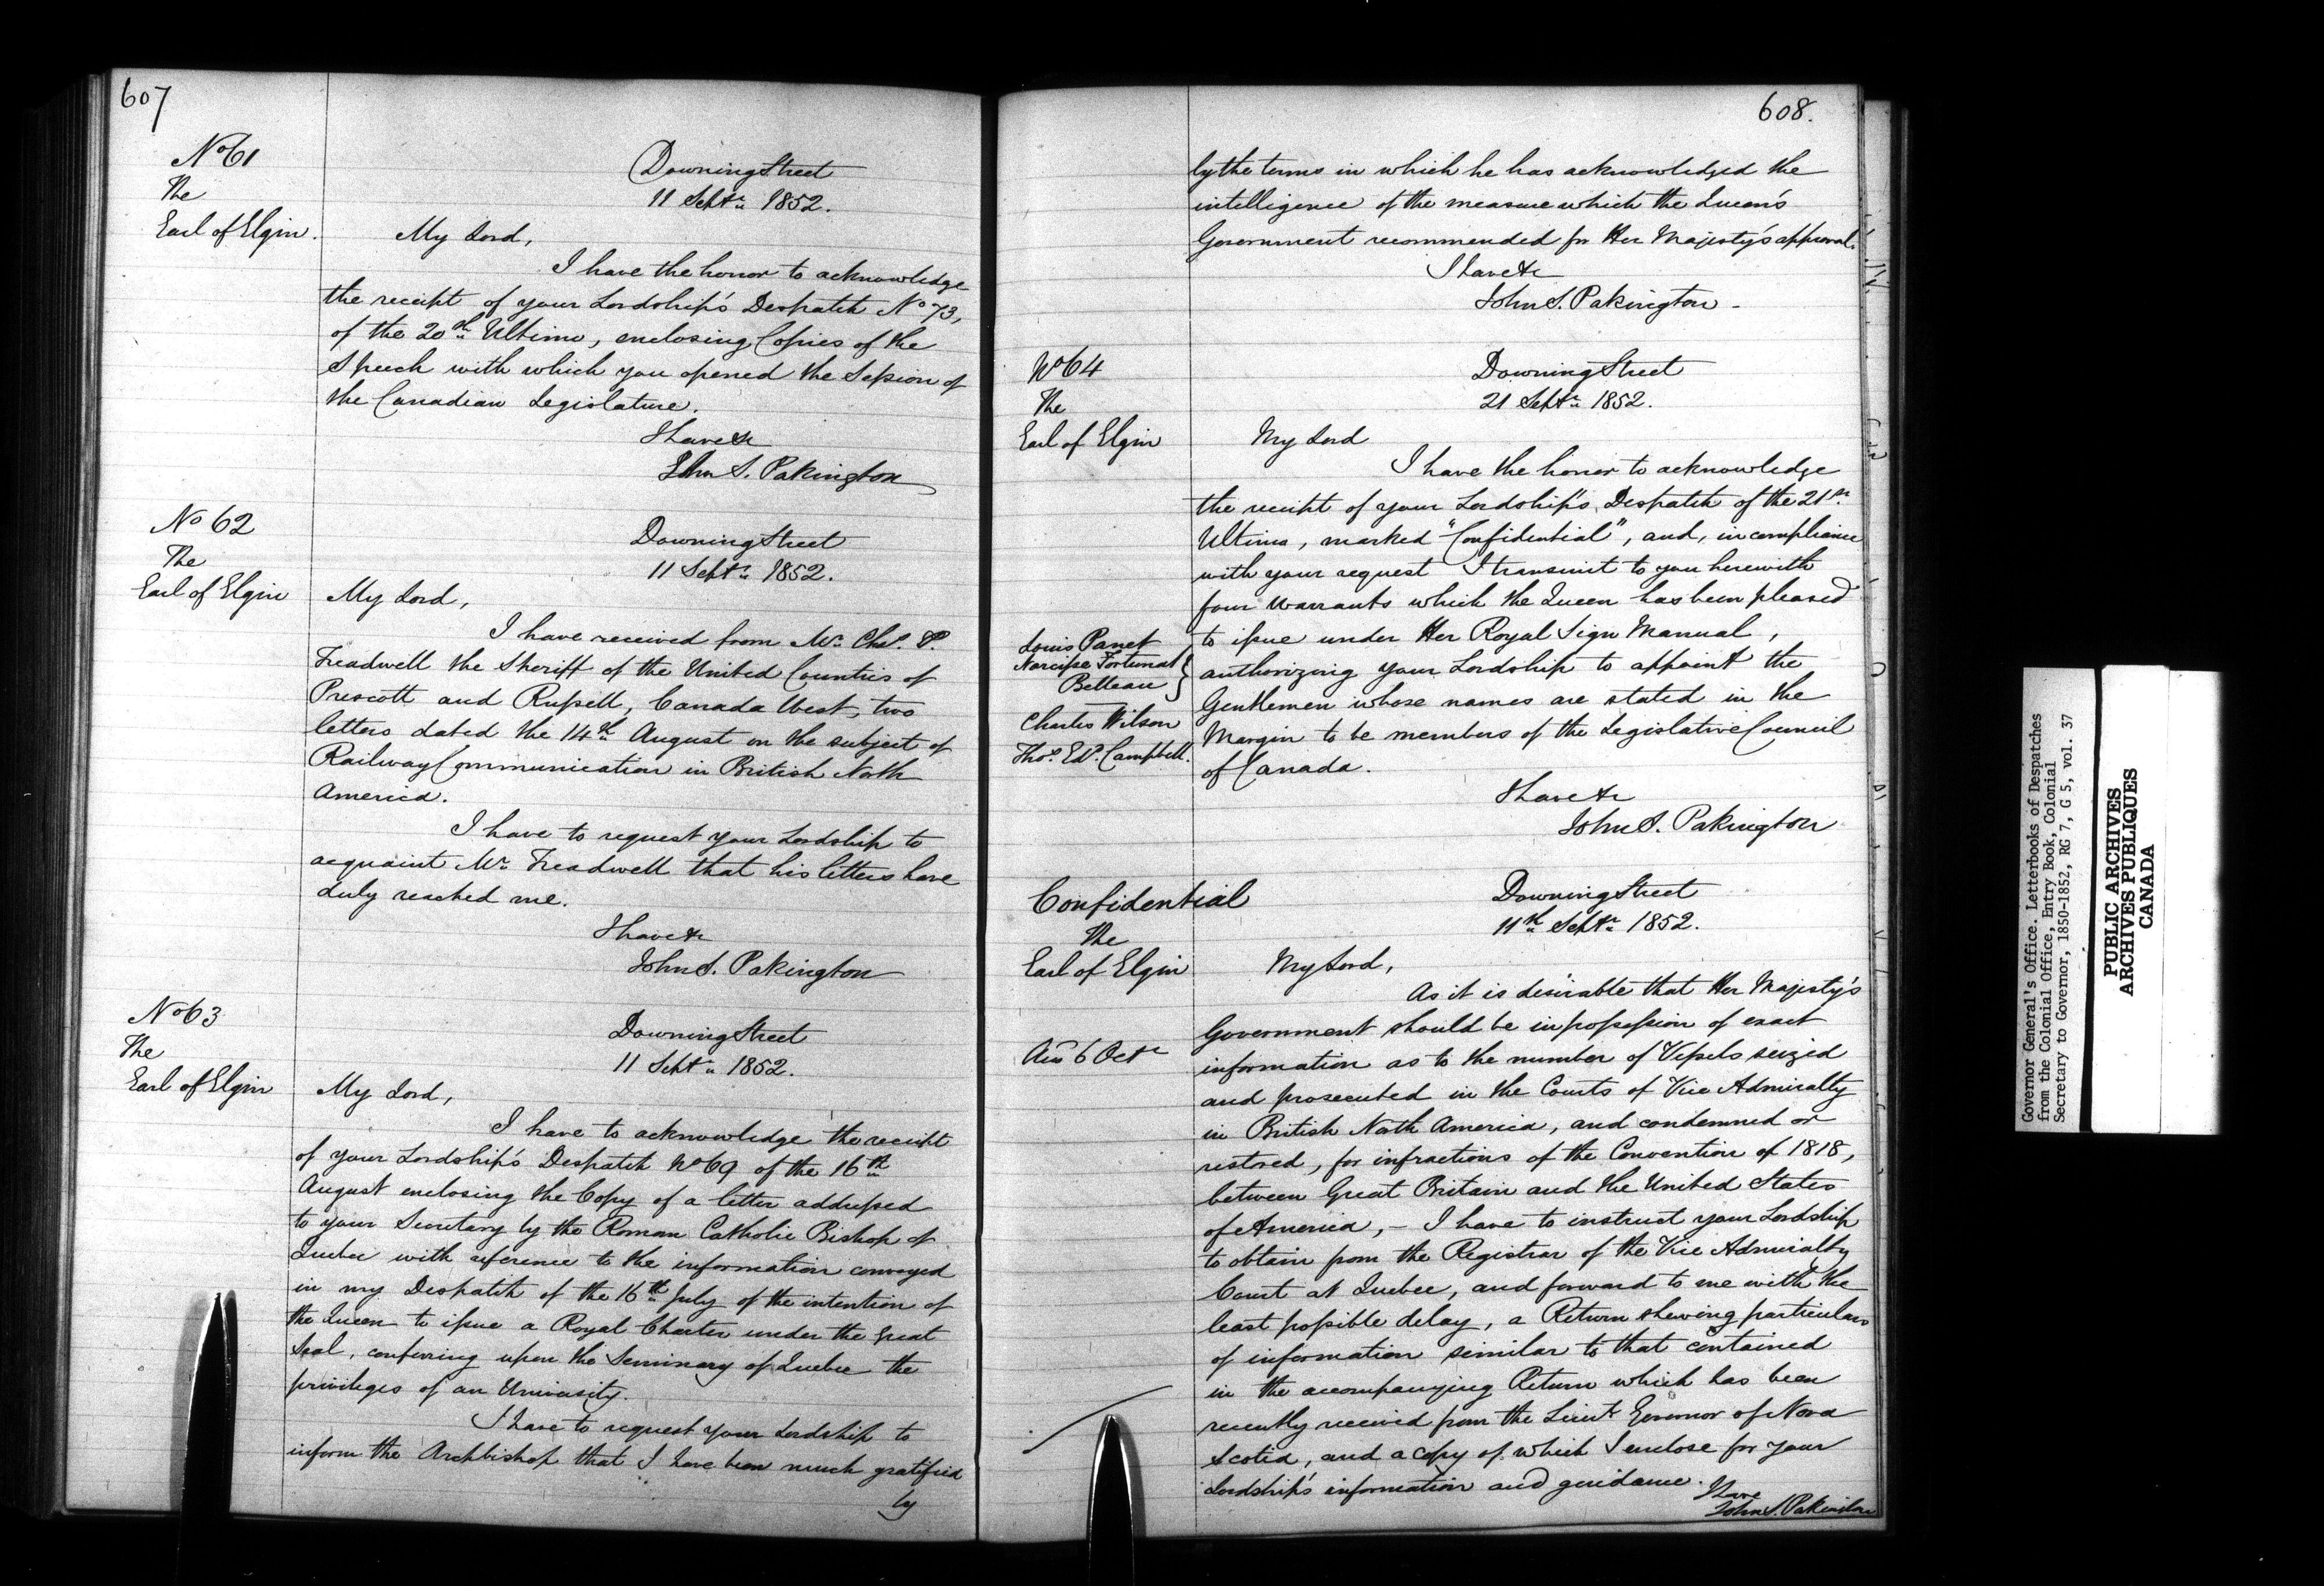 607
No 61
The
Earl of Elgin.
Downing Street
11 Septr. 1852.
My Lord,
I have the honor to acknowledge
the receipt of your Lordship's Despatch No 73,
of the 20th Ultimo, enclosing Copies of the
Speech with which you opened the Session of
the Canadian Legislature.
I have &c
John S. Pakington
No 62
The
Earl of Elgin
Downing Street
11 Septr. 1852.
My Lord,
I have received from Mr. Chs. P.
Treadwell the Sheriff of the United Counties of
Prescott and Russell, Canada West, two
letters dated the 14th August on the subject of
Railway Communication in British North
America.
I have to request your Lordship to
acquaint Mr. Treadwell that his letters have
duly reached me.
I have &c
John S. Pakington
No 63
The
Earl of Elgin
Downing Street
11 Septr. 1852.
My Lord,
I have to acknowledge the receipt
of your Lordship's Despatch No 69 of the 16th
August enclosing the Copy of a letter addressed
to your Secretary by the Roman Catholic Bishop of
Quebec with reference to the information conveyed
in my Despatch of the 16th July of the intention of
the Queen to issue a Royal Charter under the Great
Seal, conferring upon the Seminary of Quebec the
privileges of an University.
I have to request your Lordship to
inform the Archbishop that I have been much gratified
by
608.
by the terms in which he has acknowledged the
intelligence of the measure which the Queen's
Government recommended for Her Majesty's approval.
I have &c
John S. Pakington
No 64
The
Earl of Elgin
Downing Street
21 Septr. 1852.
My Lord
I have the honor to acknowledge
the receipt of your Lordship's Despatch of the 21st
Ultimo, marked "Confidential", and, in compliance
with your request I transmit to you herewith
four Warrants which the Queen has been pleased
to issue under Her Royal Sign Manual,
authorizing your Lordship to appoint the
Gentlemen whose names are stated in the
Margin to be members of the Legislative Council
of Canada.
Louis Panet
Narcisse Fortunat
Belleau
Charles Wilson
Thos. Ed. Campbell.
I have &c
John S. Pakington
Confidential
The
Earl of Elgin
Downing Street
11th Septr. 1852.
My Lord,
As it is desirable that Her Majesty's
Government should be in possession of exact
information as to the number of Vessels seized
and prosecuted in the Courts of Vice Admiralty
in British North America, and condemned or
restored, for infractions of the Convention of 1818,
between Great Britain and the United States
of America, – I have to instruct your Lordship
to obtain from the Registrar of the Vice Admiralty
Court at Quebec, and forward to me with the
least possible delay, a Return shewing particulars
of information similar to that contained
in the accompanying Return which has been
recently received from the Lieut. Governor of Nova
Scotia, and a copy of which I enclose for your
Lordship's information and guidance.
6 Oct
I have
John S. Pakington
Governor General's Office. Letterbooks of Despatches
from the Colonial Office, Entry Book, Colonial
Secretary to Governor, 1850-1852, RG 7, G 5, vol. 37
PUBLIC ARCHIVES
ARCHIVES PUBLIQUES
CANADA